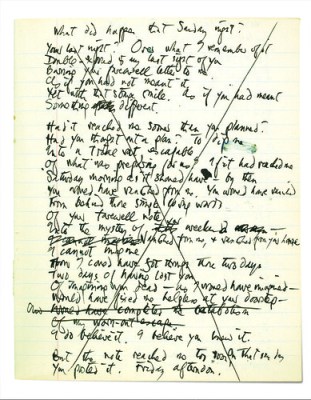 What did happen that Sunday night?
Your last night? Over what I remember of it
Double exposed is my last sight of you
Burning your farewell letter to me
As if you had not meant it
Yet with that strange smile. As if you had meant
Something different.
Had it reached me sooner than you planned?
Had you thought out a plan to
Into a
Of what was preparing for us? If it had reached me
Saturday morning as it should have by then
You would have vanished from me. You would have vanished
From behind those single words
Of your farewell note
Into the mystery of weekend
vanished from me, & vanished from your house
I cannot imagine
How I could have got through those two days
Two days of having lost you
Of imagining you dead
Would have fixed me helpless at your doorstep
Would have completed the
Of my worn-out escape.
I do believe it. I believe you knew it.
But the note reached me too soon that same day
You posted it. Friday afternoon.